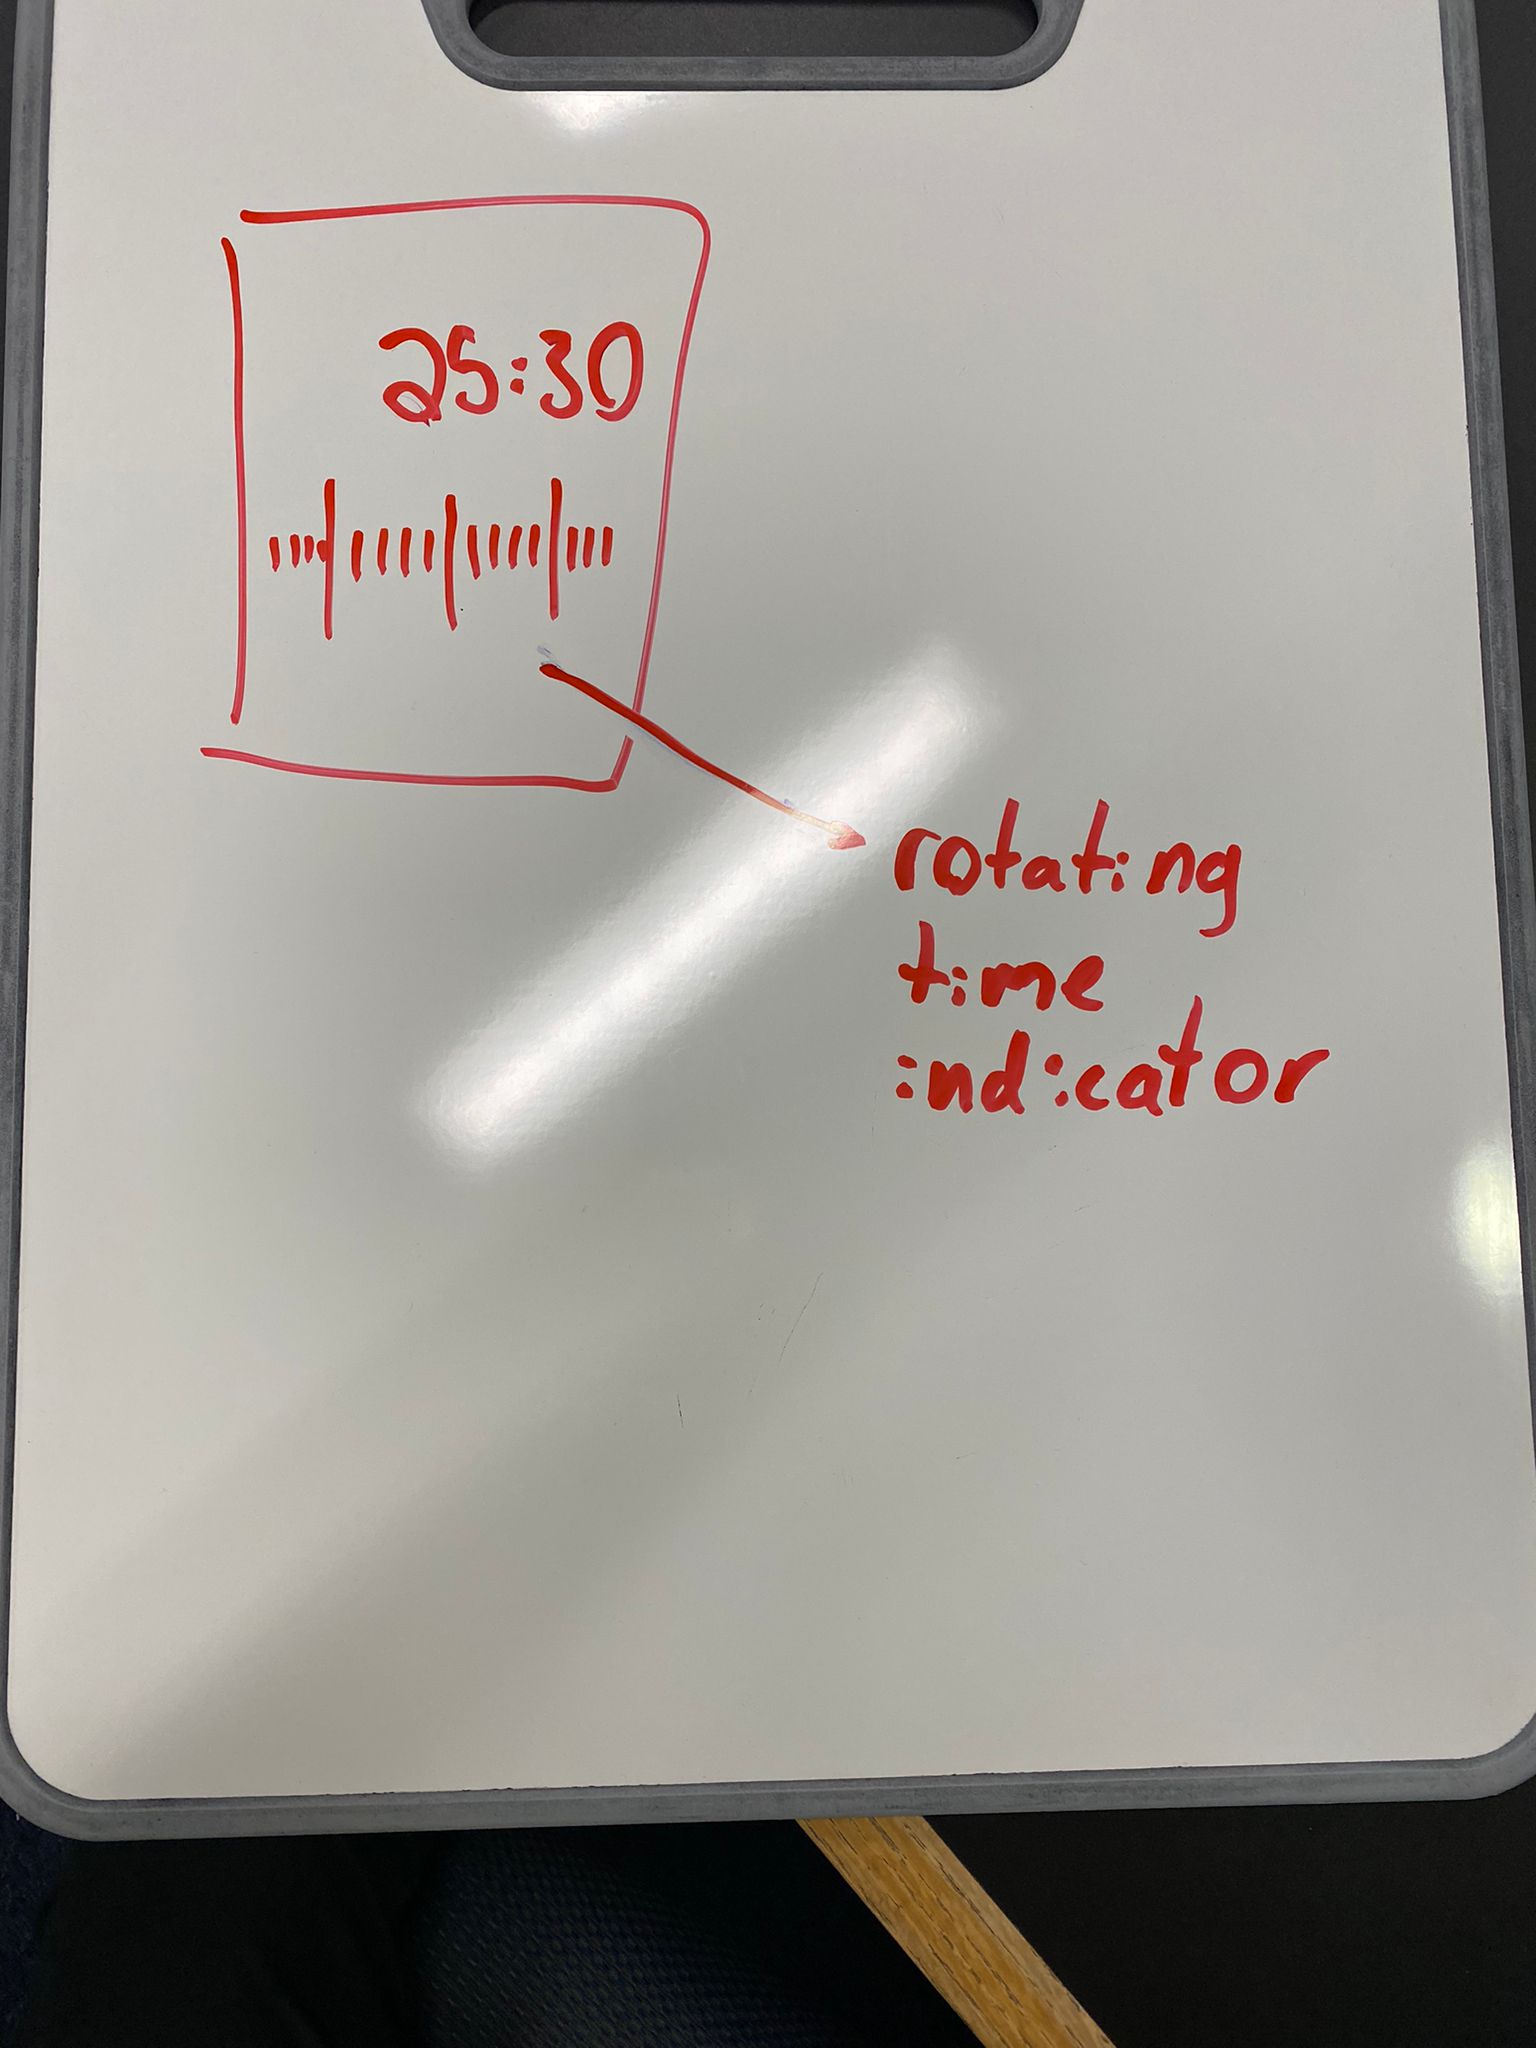 25:30
rotating
time
indicator